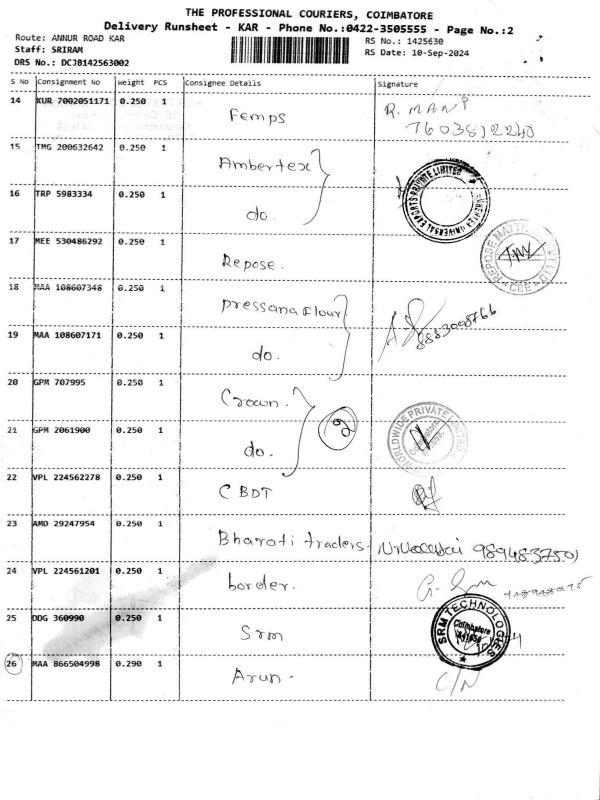 THE PROFESSIONAL COURIERS, COIMBATORE
Delivery Runsheet - KAR - Phone No.:0422-3505555 - Page No.:2
Route: ANNUR ROAD KAR
RS No.: 1425630
Staff: SRIRAM
RS Date: 10-Sep-2024
DRS No.: DCJB142563002
S No Consignment No Weight PCS Consignee Details Signature
14 KUR 7002051171 0.250 1 Femps R. MANI
7603812240
15 TMG 200632642 0.250 1 Ambertex
16 TRP 5983334 0.250 1 do.
UNIVERSAL EXPORTS PRIVATE LIMITED
17 MEE 530486292 0.250 1 Repose.
REPOSE CBE
18 MAA 108607348 0.250 1 pressana flour
8883098766
19 MAA 108607171 0.250 1 do.
20 GPM 707995 0.250 1 Crown.
21 GPM 2061900 0.250 1 do.
2
WORLDWIDE PRIVATE LIMITED
Coimbatore
22 VPL 224562278 0.250 1 CBDT
23 AMD 29247954 0.250 1 Bharati traders.
24 VPL 224561201 0.250 1 border.
25 DDG 360990 0.250 1 Srm
SRM TECHNOLOGIES
Coimbatore
26 MAA 866504998 0.290 1 Arun. C/N